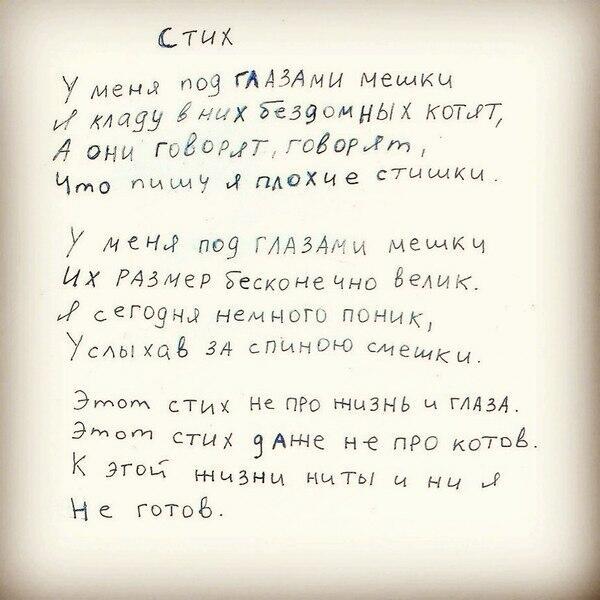 Стих
У меня под глазами мешки
Я кладу в них бездомных котят,
А они говорят, говорят,
Что пишу я плохие стишки.
У меня под глазами мешки
Их размер бесконечно велик.
Я сегодня немного поник,
Услыхав за спиною смешки.
Этот стих не про жизнь и глаза.
Этот стих даже не про котов.
К этой жизни ни ты и ни я
Не готов.